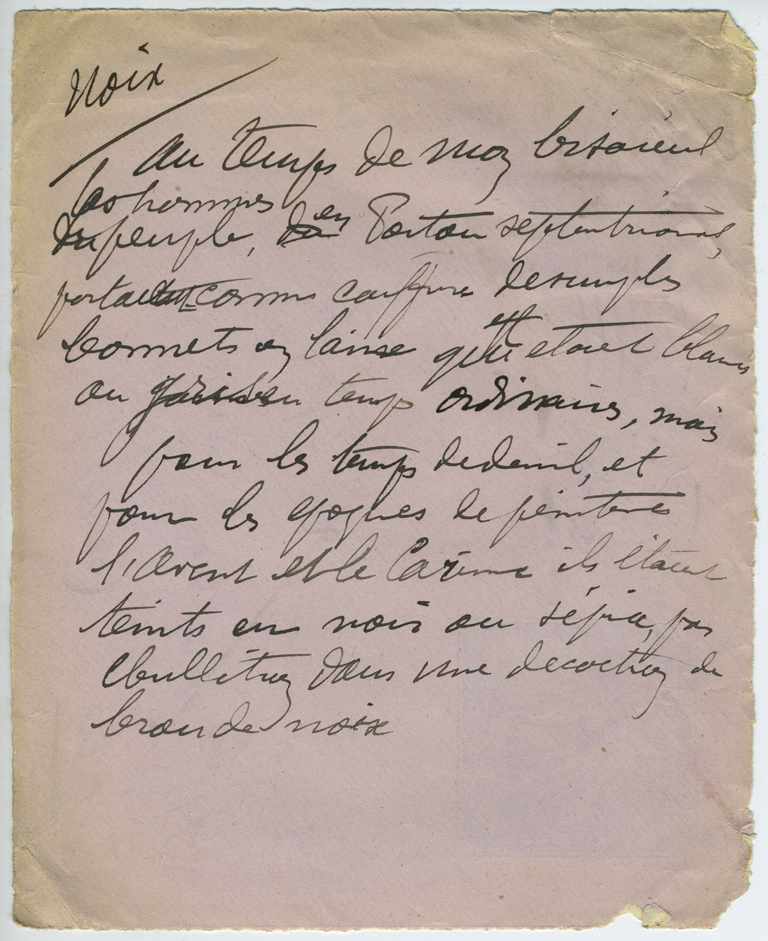 Noix
au temps de mon bisaieul
les hommes
du peuple, en Poitou septentrional,
portaient comme coiffure de simples
bonnets en laine qui etaient blancs
ou gris en temps ordinaires, mais
pour les temps de deuil, et
pour les epoques de penitence
l'avent et le Carême ils étaient
teints en noir ou sépia, par
ebullition dans une decoction de
brou de noix